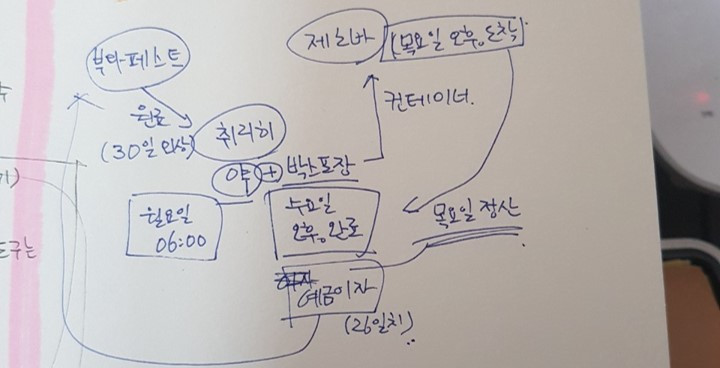 부다페스트
원료
(30일 이상)
취리히
제노바
(목요일 오후, 도착)
컨테이너.
약 + 박스포장
월요일
06:00
수요일
오후, 완료
목요일 정산
예금이자
(26일치)
기)
도구는